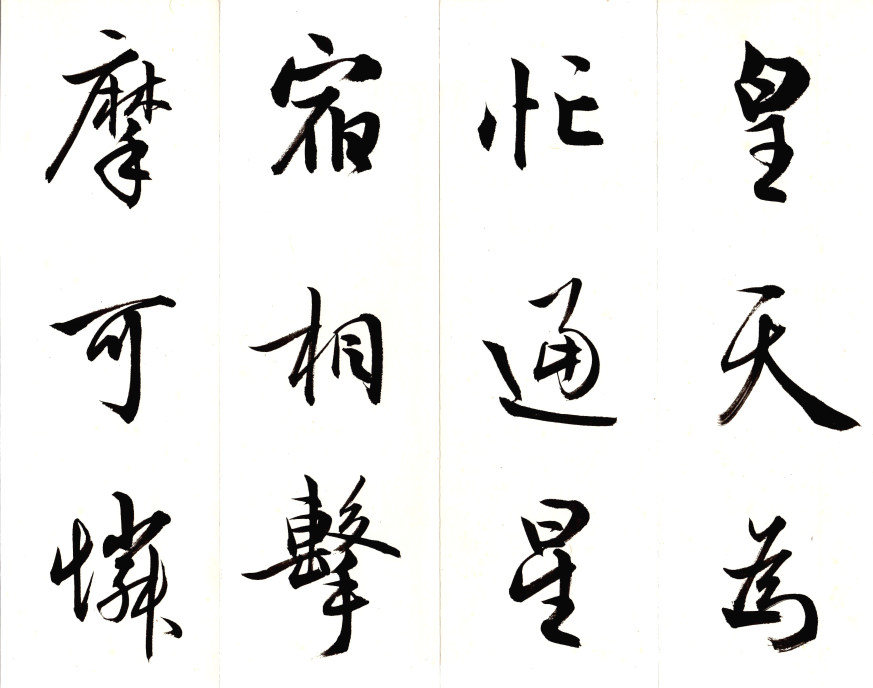 皇天為
忙通星
宿相擊
摩可憐